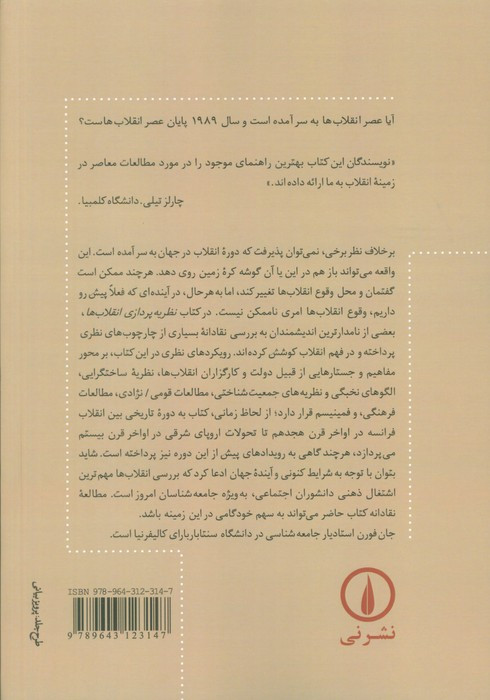 آیا عصر انقلاب‌ها به سر آمده است و سال ۱۹۸۹ پایان عصر انقلاب‌هاست؟
«نویسندگان این کتاب بهترین راهنمای موجود را در مورد مطالعات معاصر در
زمینهٔ انقلاب به ما ارائه داده‌اند.»
چارلز تیلی. دانشگاه کلمبیا.
برخلاف نظر برخی، نمی‌توان پذیرفت که دورهٔ انقلاب در جهان به سر آمده است. این
واقعه می‌تواند باز هم در این یا آن گوشه کرهٔ زمین روی دهد. هرچند ممکن است
گفتمان و محل وقوع انقلاب‌ها تغییر کند، اما به هر حال، در آینده‌ای که فعلاً پیش رو
داریم، وقوع انقلاب‌ها امری ناممکن نیست. در کتاب نظریه‌پردازی انقلاب‌ها،
بعضی از نامدارترین اندیشمندان به بررسی نقادانهٔ بسیاری از چارچوب‌های نظری
پرداخته و در فهم انقلاب کوشش کرده‌اند. رویکردهای نظری در این کتاب، بر محور
مفاهیم و جستارهایی از قبیل دولت و کارگزاران انقلاب‌ها، نظریهٔ ساختگرایی،
الگوهای نخبگی و نظریه‌های جمعیت‌شناختی، مطالعات قومی / نژادی، مطالعات
فرهنگی، و فمینیسم قرار دارد؛ از لحاظ زمانی، کتاب به دورهٔ تاریخی بین انقلاب
فرانسه در اواخر قرن هجدهم تا تحولات اروپای شرقی در اواخر قرن بیستم
می‌پردازد، هرچند گاهی به رویدادهای پیش از این دوره نیز پرداخته است. شاید
بتوان با توجه به شرایط کنونی و آیندهٔ جهان ادعا کرد که بررسی انقلاب‌ها مهم‌ترین
اشتغال ذهنی دانشوران اجتماعی، به‌ویژه جامعه‌شناسان امروز است. مطالعهٔ
نقادانه کتاب حاضر می‌تواند به سهم خود گامی در این زمینه باشد.
جان فورن استادیار جامعه‌شناسی در دانشگاه سنتاباربارای کالیفرنیا است.
نشر نی
ISBN 978-964-312-314-7
9 789643 123147
طرح جلد: پرویز بیانی